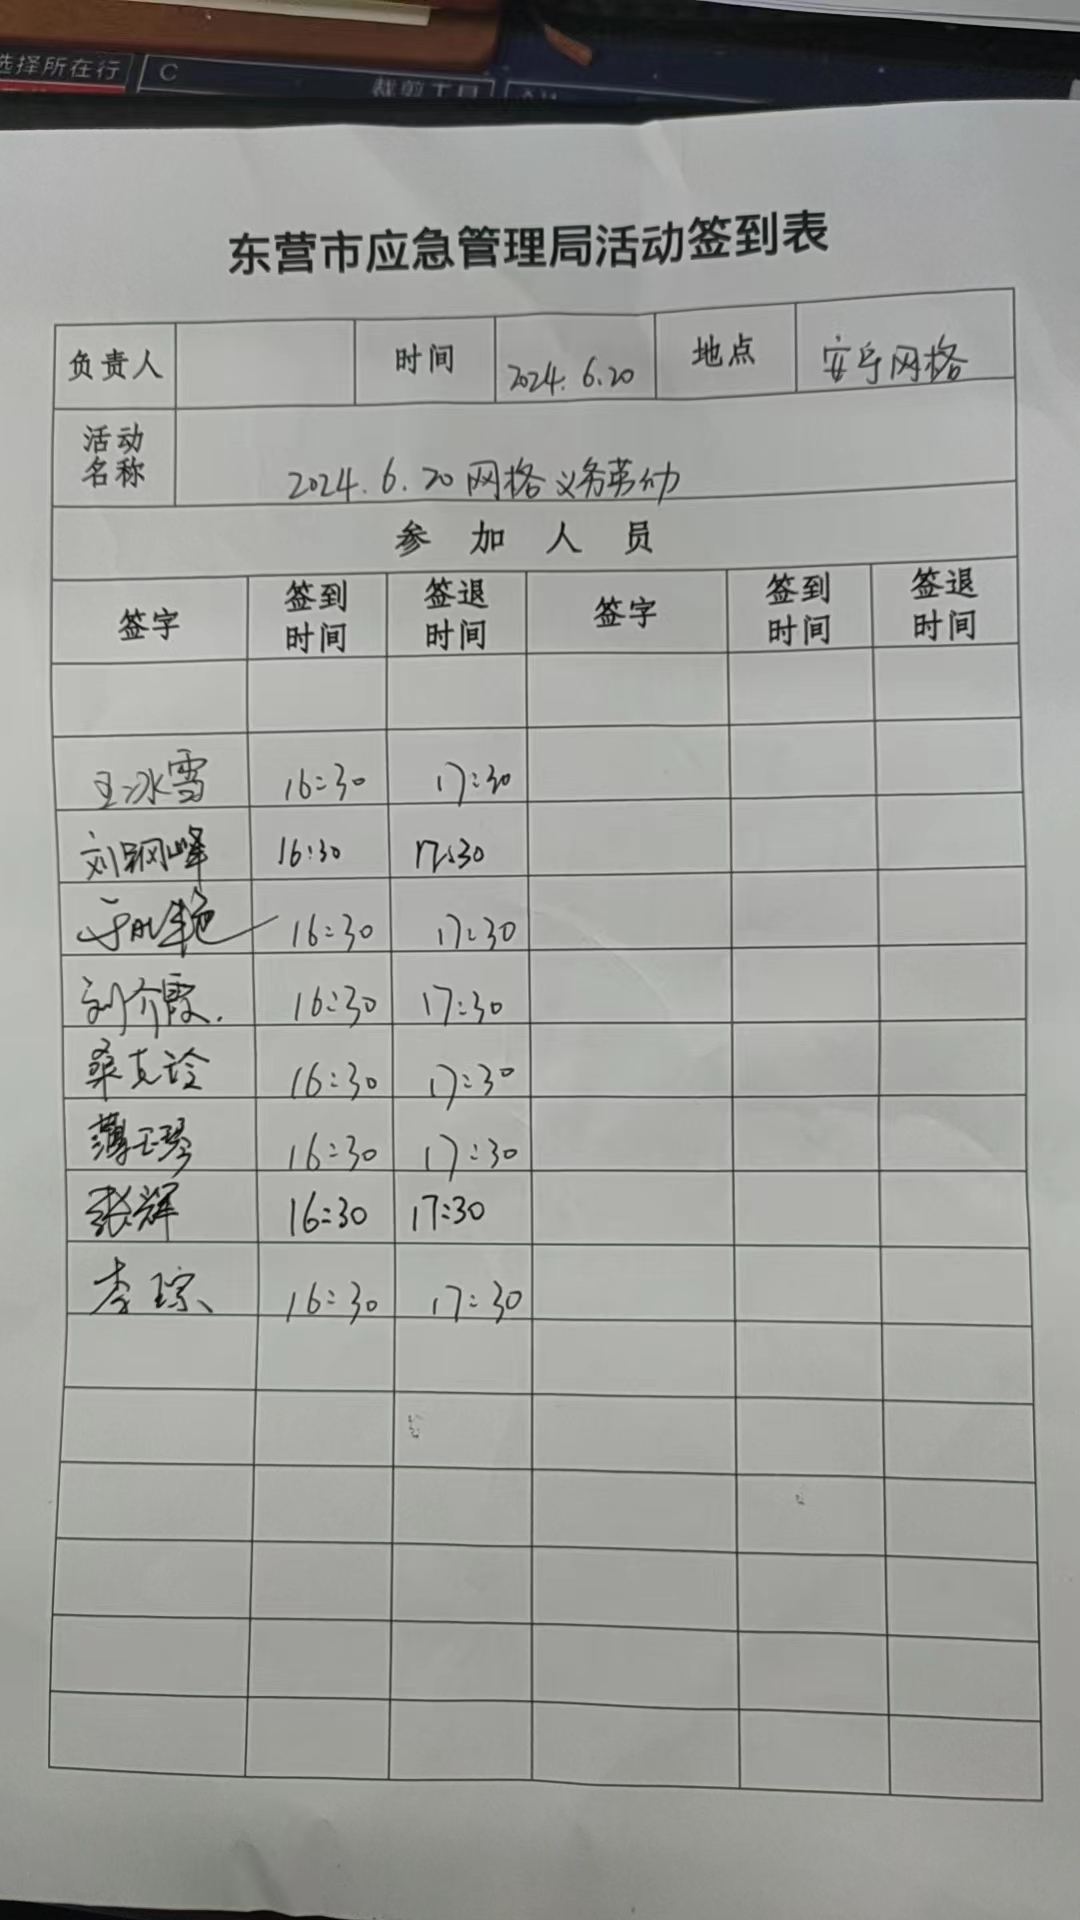 选择所在行
C
裁剪工具
东营市应急管理局活动签到表
负责人 时间 2024.6.20 地点 安宁网格
活动名称 2024.6.20网格义务劳动
参加人员
签字 签到时间 签退时间 签字 签到时间 签退时间
王冰雪 16:30 17:30
刘钢峰 16:30 17:30
16:30 17:30
刘介霞. 16:30 17:30
桑克玲 16:30 17:30
薄玉琴 16:30 17:30
张辉 16:30 17:30
李琮 16:30 17:30